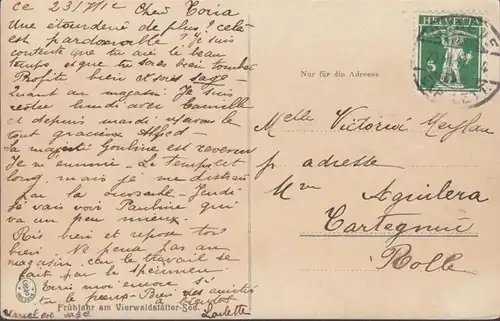 ce 23/7/12 Cher Toria
Une étourderie de plus? celà
est pardonnable. Je suis
contente que tu aies le beau
temps et que tu sois bien tombée
Profite bien et sois sage
Quant au magasin. Je suis
restée lundi avec Camille
et depuis mardi nous avons le
tout gracieux Alfred
sa majesté Gouline est revenue
Je m'ennuie. Le temps est
long mais je me distrais
par la Jeudi
Je vais voir Pauline qui
va un peu mieux.
Ris bien et repose toi
bien. Ne pense pas au
magasin car le travail se
fait par le
Ecris moi encore si
tu le peux. Bien des amitiés
à bientôt
Marcel est sage Laulette
Frühjahr am Vierwaldstätter-See.
Nur für die Adresse
HELVETIA
5
Melle Victoria
p. adresse
Mme Aguilera
Cartegnin
Rolle